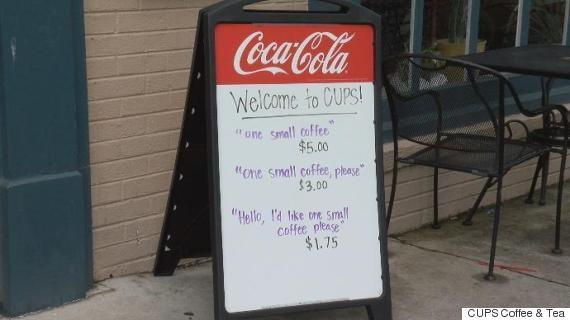 Coca-Cola
Welcome to CUPS!
"one small coffee"
$5.00
"One small coffee, please"
$3.00
"Hello, I'd like one small
coffee please"
$1.75
CUPS Coffee & Tea